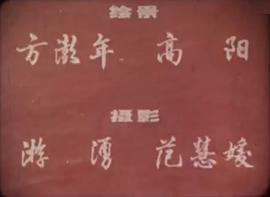 绘景
方澈年 高阳
摄影
游湧 范慧媛